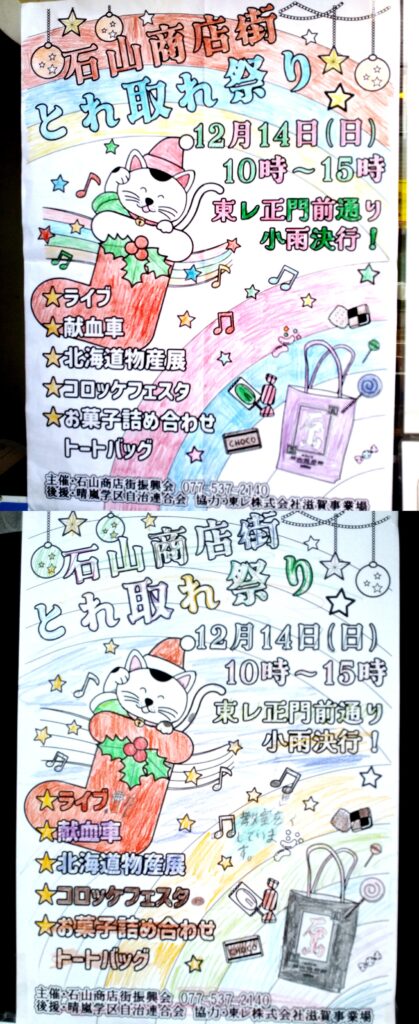 石山商店街
とれ取れ祭り
12月14日(日)
10時～15時
東レ正門前通り
小雨決行！
★ライブ
★献血車
★北海道物産展
★コロッケフェスタ
★お菓子詰め合わせ
トートバッグ
CHOCO
主催・石山商店街振興会 077-537-2140
後援・晴嵐学区自治連合会 協力・東レ株式会社滋賀事業場
石山商店街
とれ取れ祭り
12月14日(日)
10時～15時
東レ正門前通り
小雨決行！
★ライブ
★献血車
★北海道物産展
★コロッケフェスタ
★お菓子詰め合わせ
トートバッグ
しています。
CHOCO
主催・石山商店街振興会 077-537-2140
後援・晴嵐学区自治連合会 協力・東レ株式会社滋賀事業場